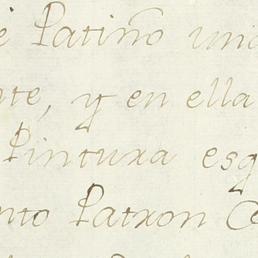 é Patiño una
nte, y en ella
Pintura esq
nto Patron